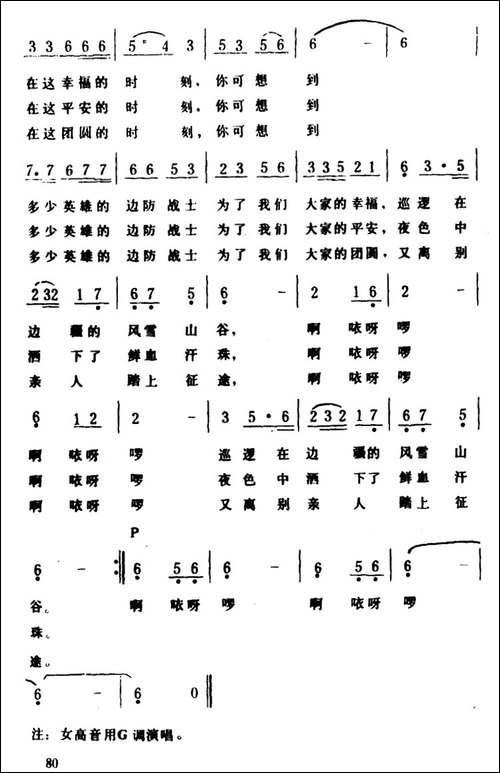 3 3 6 6 6 | 5 · 4 3 | 5 3 5 6 | 6 - | 6
在这幸福的 时 刻，你可想 到
在这平安的 时 刻，你可想 到
在这团圆的 时 刻，你可想 到
7. 7 6 7 7 | 6 6 5 3 | 2 3 5 6 | 3 3 5 2 1 | 6 3 · 5
多少英雄的 边防战士 为了我们 大家的幸福，巡逻在
多少英雄的 边防战士 为了我们 大家的平安，夜色中
多少英雄的 边防战士 为了我们 大家的团圆，又离别
2 32 1 7 | 6 7 5 | 6 - | 2 1 6 | 2 -
边 疆的 风雪 山 谷， 啊 咴呀 啰
洒 下了 鲜血 汗 珠， 啊 咴呀 啰
亲 人 踏上 征 途， 啊 咴呀 啰
6 1 2 | 2 - | 3 5 · 6 | 2 3 2 1 7 | 6 7 5
啊 咴呀 啰 巡 逻在 边 疆的 风雪 山
啊 咴呀 啰 夜 色中 洒 下了 鲜血 汗
啊 咴呀 啰 又 离别 亲 人 踏上 征
P
6 - :‖ 6 5 6 | 6 - | 6 5 6 | 6 -
谷。 啊 咴呀 啰 啊 咴呀 啰
珠。
途。
6 - | 6 0 ‖
注：女高音用G调演唱。
80